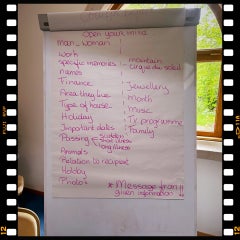 Open your mind
man - woman
work
specific memories
names
Finance
Area they live
Type of house
Holiday
Important dates
Passing
sudden
short illness
long illness
Animals
Relation to recipient
Hobby
Photos
mountain
cirque du soleil
Jewellery
Month
Music
Tv programme
Family
* Message from !!
given information